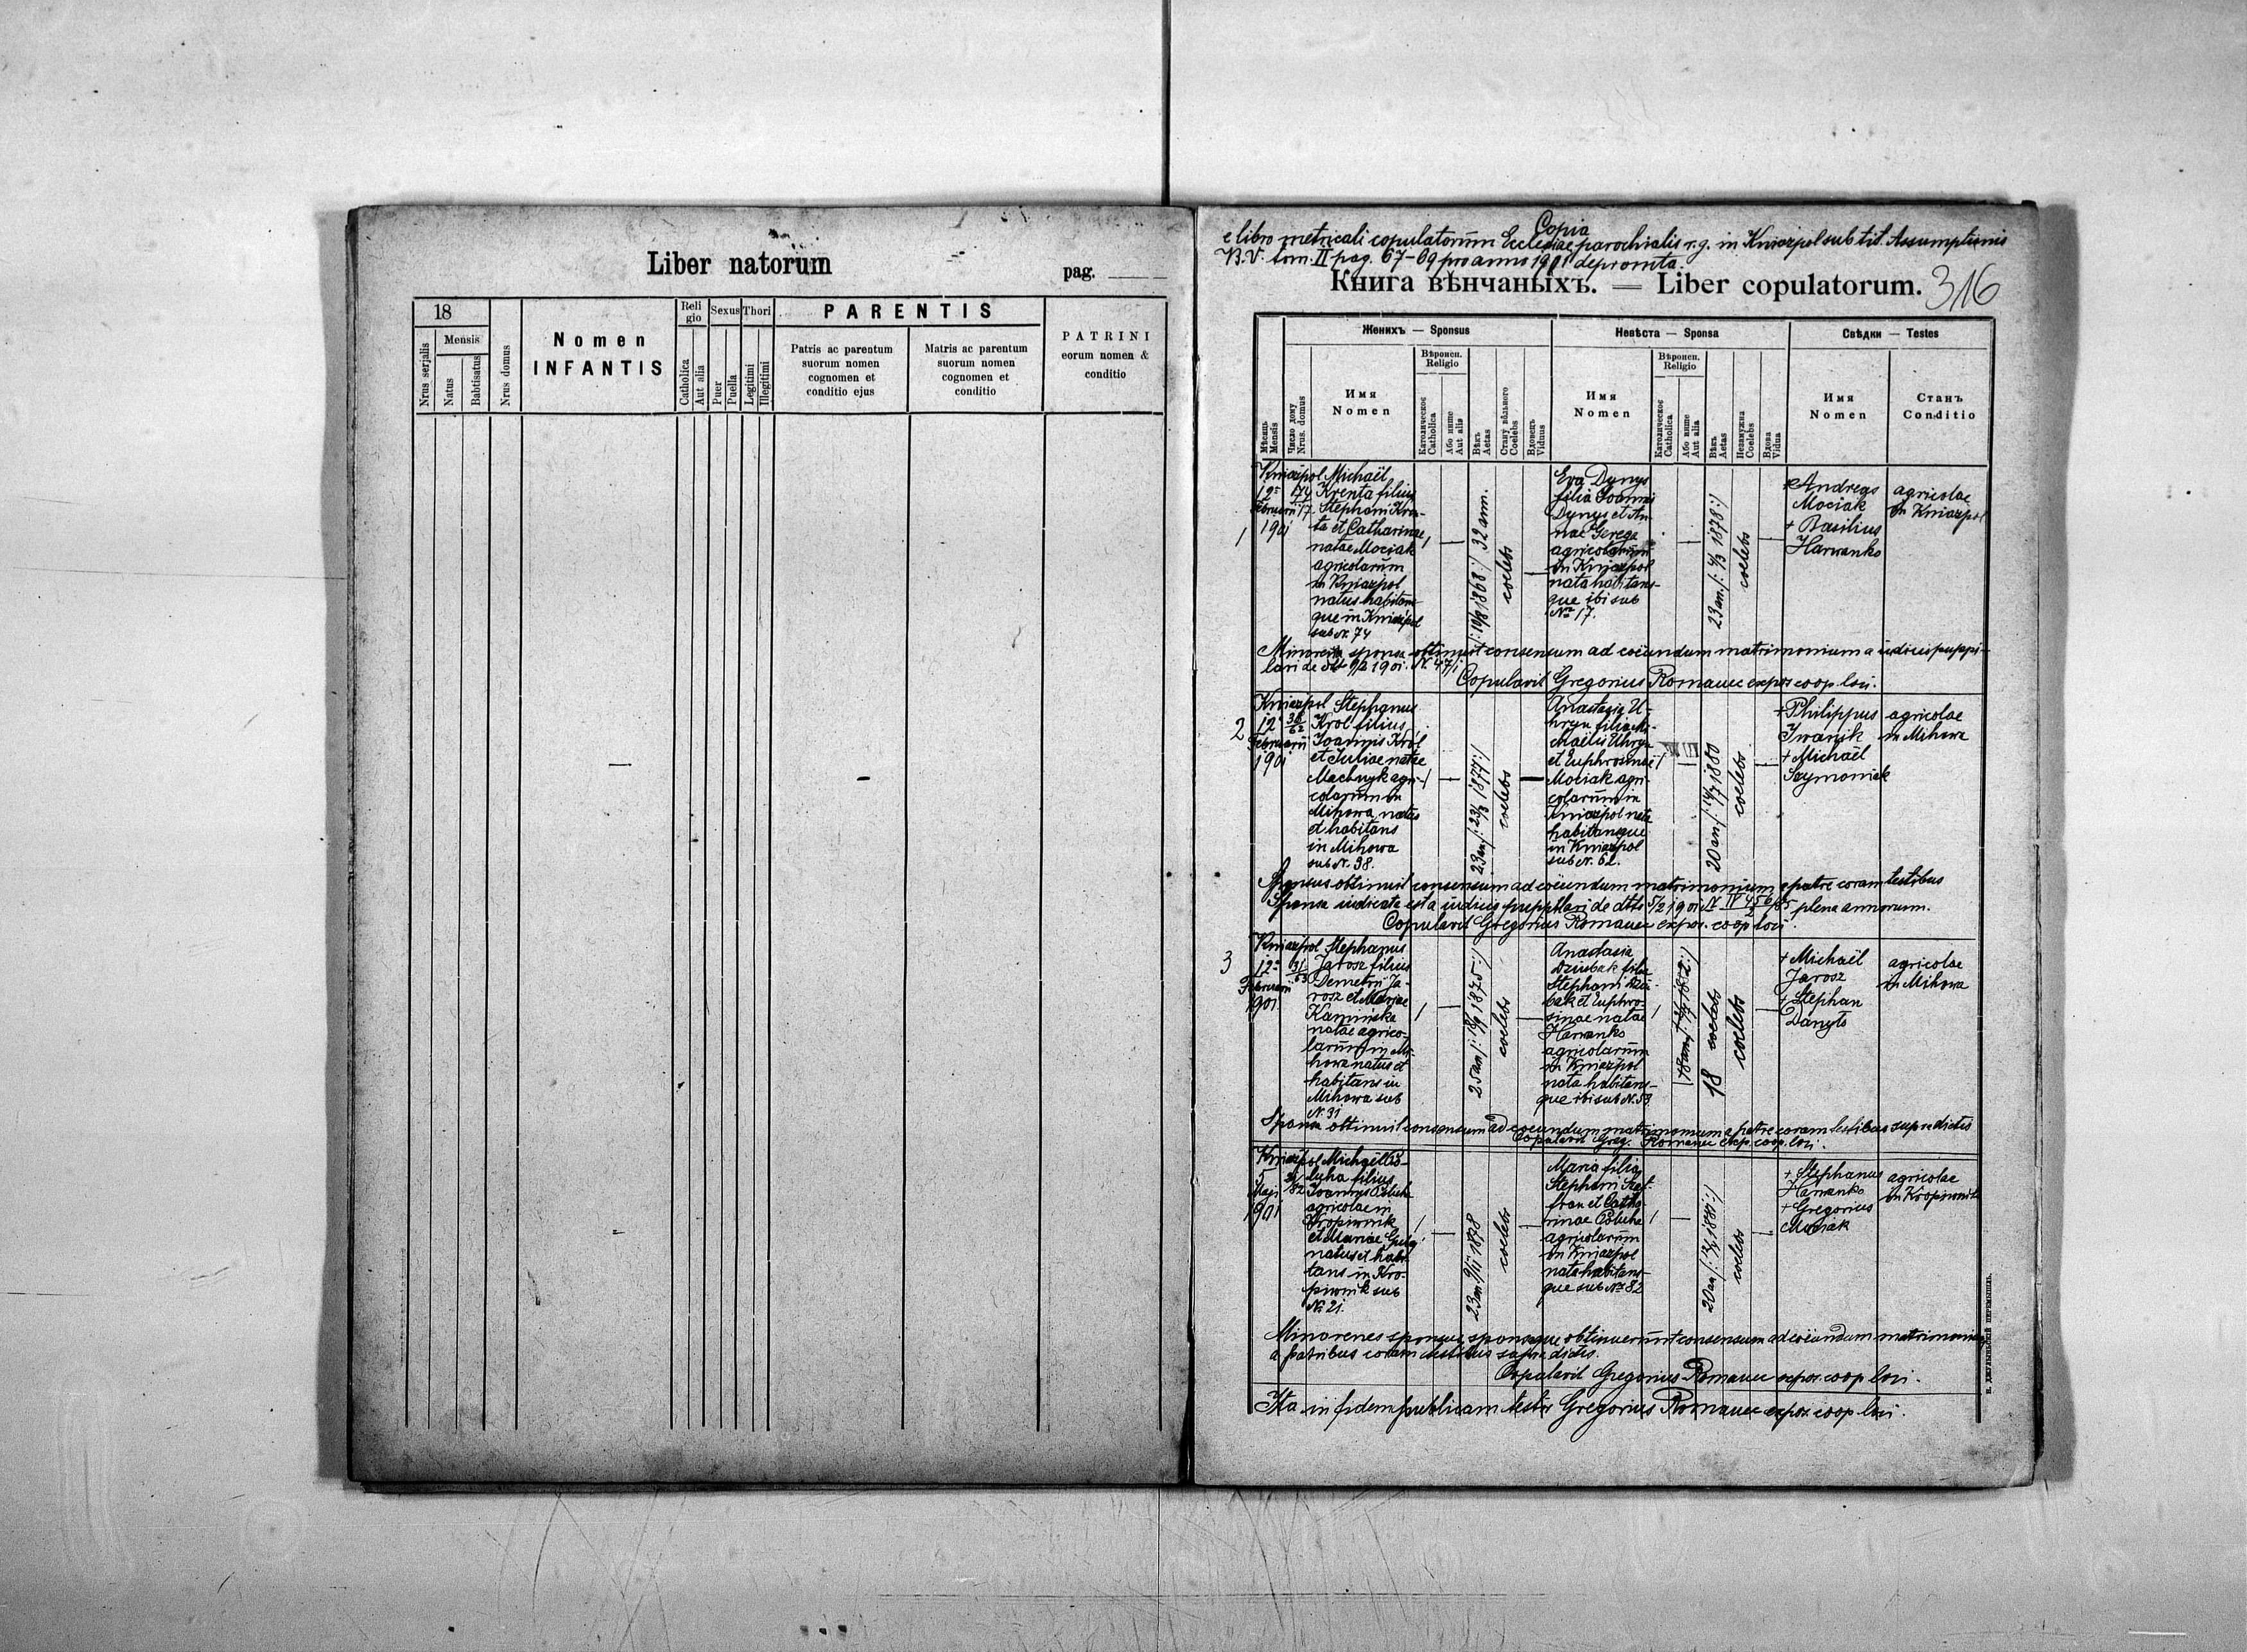 Liber natorum
pag.
18
Mensis
Nrus serjalis
Natus
Babtisatus
Nrus domus
Nomen
INFANTIS
Reli
gio
Catholica
Aut alia
Sexus
Puer
Puella
Thori
Legitimi
Illegitimi
PARENTIS
Patris ac parentum
suorum nomen
cognomen et
conditio ejus
Matris ac parentum
suorum nomen
cognomen et
conditio
PATRINI
eorum nomen &
conditio
Copia
e libro metricali copulatorum Ecclesiae parochialis r.g. in Kniazpol sub tit. Assumptionis
B.V. tom. II pag. 67-69 pro anno 1901 deprompta.
Книга вѣнчаныхъ. — Liber copulatorum.
316
Мѣсяць
Mensis
Число дому
Nrus. domus
Женихъ — Sponsus
Имя
Nomen
Вѣроисп.
Religio
Католическое
Catholica
Або инше
Aut alia
Вѣкъ
Aetas
Стану вôльного
Coelebs
Вдовець
Viduus
Невѣста — Sponsa
Имя
Nomen
Вѣроисп.
Religio
Католическое
Catholica
Або инше
Aut alia
Вѣкъ
Aetas
Незамужна
Coelebs
Вдова
Vidua
Свѣдки — Testes
Имя
Nomen
Станъ
Conditio
1
Kniazpol
12
Februarii
1901
74
17
Michaël
Krenta filius
Stephani Kren-
ta et Catharinae
natae Mociak
agricolarum
in Kniazpol
natus habitans-
que in Kniazpol
sub N. 74
32 ann.
coelebs
Eva Dynys
filia Joannis
Dynys et An-
nae Gerega
agricolarum
in Kniazpol
nata habitans-
que ibi sub
No 17.
23 an /: 4/3 1878 :/
coelebs
+ Andreas
Mociak
+ Basilius
Harwanko
agricolae
in Kniazpol
Minorenis sponsa obtinuit consensum ad coëundum matrimonium a iudicii puppi-
lari de dtto 9/2 1901. N. 47/1
Copulavit Gregorius Romanec expos. coop. loci.
2
Kniazpol
12
Februarii
1901
38
62
Stephanus
Krol filius
Joannis Król
et Juliae natae
Machnyk agri-
colarum in
Mihowa natus
et habitans
in Mihowa
sub N. 38.
23 an /: 23/3 1877 :/
coelebs
Anastasia U-
hryn filia Mi-
chaëlis Uhryn
et Euphrosinae
Mociak agri-
colarum in
Kniazpol nata
habitansque
in Kniazpol
sub N. 62.
coelebs
+ Philippus
Iwanik
+ Michaël
Szymoniak
agricolae
in Mihowa
Sponsus obtinuit consensum ad coëundum matrimonium a patre coram testibus
Sponsa iudicata est a iudicii puppilari de dtto 5/2 1901 plena annorum.
Copulavit Gregorius Romanec expos. coop. loci.
3
Kniazpol
12
Februarii
1901
31
53
Stephanus
Jarosz filius
Demetrii Ja-
rosz et Mariae
Kaminska
natae agrico-
larum in Mi-
howa natus et
habitans in
Mihowa sub
N. 31
coelebs
Anastasia
Dziubak filia
Stephani Dziu-
bak et Euphro-
sinae natae
Harwanko
agricolarum
in Kniazpol
nata habitans-
que ibi sub N. 53
18
coelebs
coelebs
+ Michaël
Jarosz
+ Stephan
Danyło
agricolae
in Mihowa
Sponsa obtinuit consensum ad coëundum matrimonium a patre coram testibus supradictis
Copulavit Greg. Romanec exp. coop. loci.
Kniazpol
5
Maji
1901
21
82
Michaël
filius
Joannis
agricolae in
Kropiwnik
et Mariae
natus et habi-
tans in Kro-
piwnik sub
No 21.
23 an 9/11 1878
coelebs
Maria filia
Stephani
et Catha-
rinae
agricolarum
in Kniazpol
nata habitans-
que sub No 82
20 an
coelebs
+ Stephanus
Harwanko
+ Gregorius
Mociak
agricolae
in Kropiwnik
Minorenes sponsus, sponsaque obtinuerunt consensum ad coëundum matrimonium
a patribus coram testibus supradictis.
Copulavit Gregorius Romanec expos. coop. loci.
Ita in fidem publicam testor Gregorius Romanec expos. coop. loci.